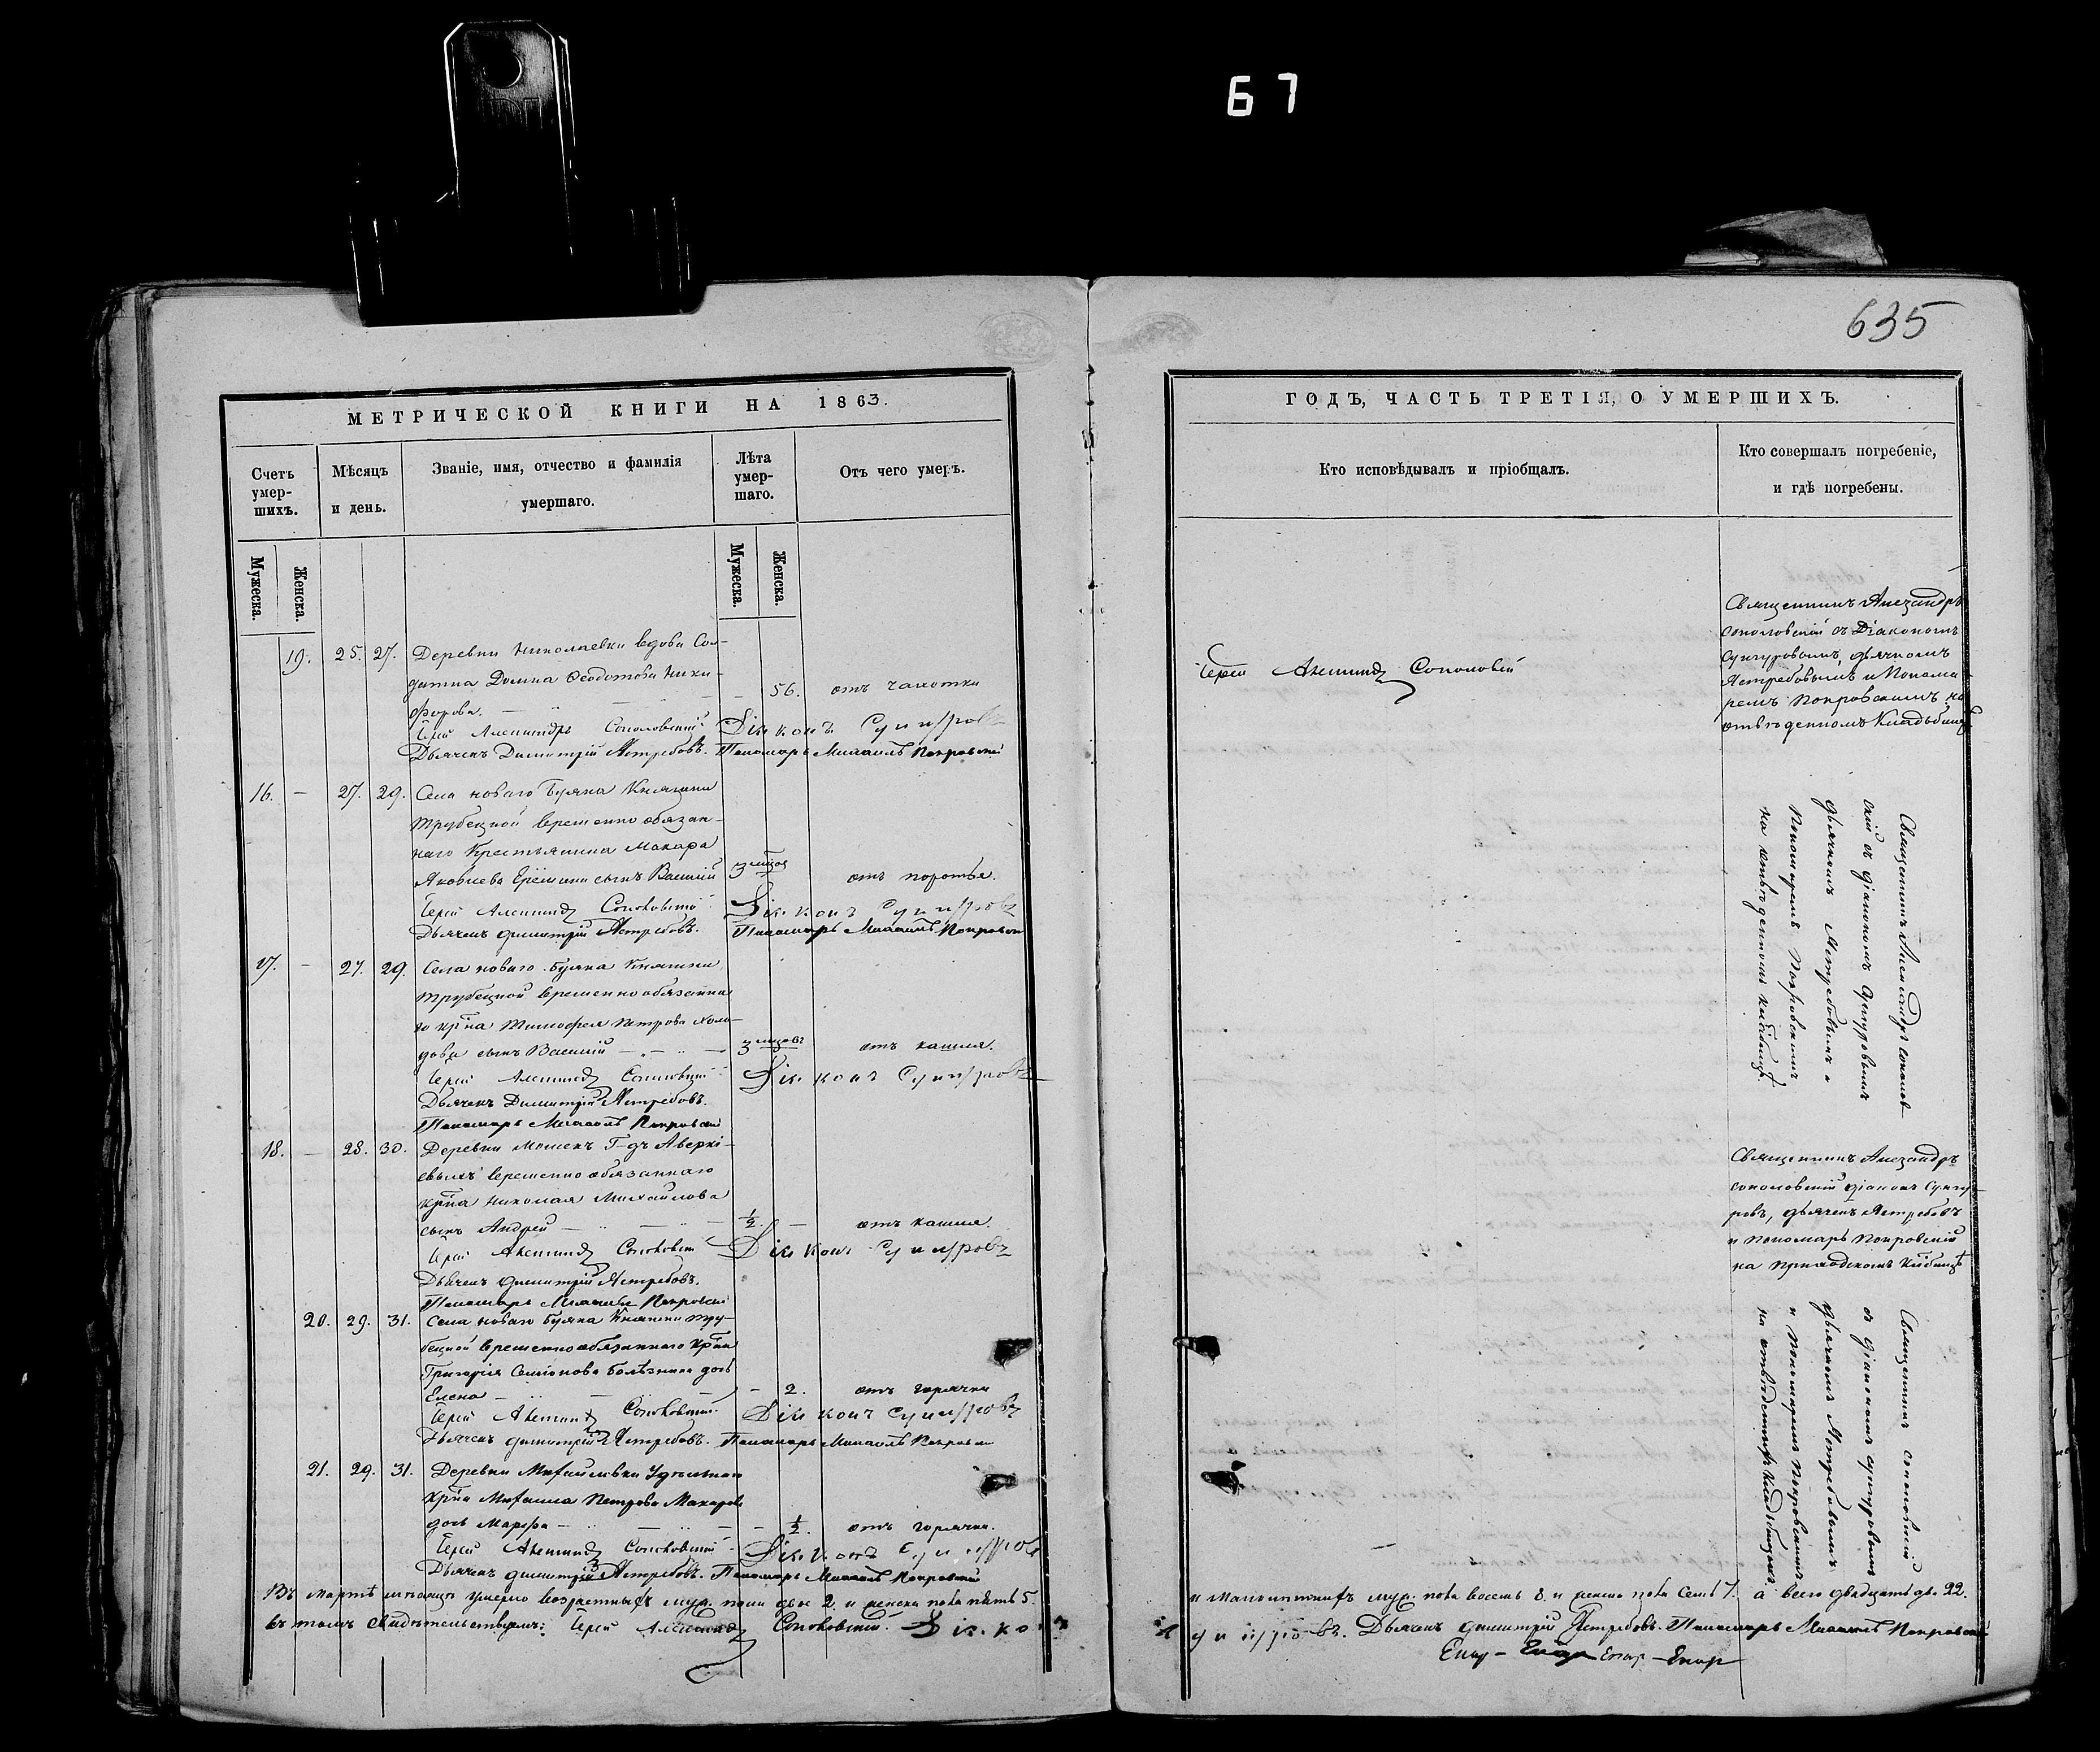 67
635
МЕТРИЧЕСКОЙ КНИГИ НА 1863.
Счетъ умер-шихъ.
Мѣсяцъ и день.
Званіе, имя, отчество и фамилія умершаго.
Лѣта умер-шаго.
Отъ чего умеръ.
Мужеска.
Женска.
Мужеска.
Женска.
19. 25. 27. Деревни Николаевки вдова Сол-
датка Домна Ѳеодотова Ники-
форова. — 56. отъ чахотки
Іерей Александръ Соколовскій Діаконъ Сунгуровъ
Дьячекъ Димитрій Ястребовъ. Пономарь Михаилъ Покровскій
16. — 27. 29. Села новаго Буяна Княгини
Трубецкой временно обязан-
наго Крестьянина Макара
Яковлева Ерёмина сынъ Василій 3 мѣсяц отъ поротья.
Іерей Александръ Соколовскій Діаконъ Сунгуровъ
Дьячекъ Димитрій Ястребовъ. Пономарь Михаилъ Покровскій
17. — 27. 29. Села новаго Буяна Княгини
Трубецкой временно обязанна
го крна Тимофея Петрова Холо-
дова сынъ Василій — 3 мцовъ отъ кашля.
Іерей Александръ Соколовскій Діаконъ Сунгуровъ
Дьячекъ Димитрій Ястребовъ.
Пономарь Михаилъ Покровскій
18. — 28. 30. Деревни Г-дъ Аверкі-
евыхъ временно обязаннаго
крна Николая Михайлова
сынъ Андрей — ½. — отъ кашля.
Іерей Александръ Соколовскій Діаконъ Сунгуровъ
Дьячекъ Димитрій Ястребовъ.
Пономарь Михаилъ Покровскій
20. 29. 31. Села новаго Буяна Княгини Тру-
бецкой временно обязаннаго крна
Григорія Семіонова дочь
Елена — 2. отъ горячки
Іерей Александръ Соколовскій Діаконъ Сунгуровъ
Дьячекъ Димитрій Ястребовъ. Пономарь Михаилъ Покровскій
21. 29. 31. Деревни Михайловки Удѣльнаго
крна Михаила Петрова Макарова
дочь Марѳа — ½. отъ горячки.
Іерей Александръ Соколовскій Діаконъ Сунгуровъ
Дьячекъ Димитрій Ястребовъ. Пономарь Михаилъ Покровскій
Въ мартѣ мѣсяцѣ умерло возрастныхъ муж. пола двое 2. и женска пола пять 5.
въ томъ свидѣтельствуемъ: Іерей Александръ Соколовскій. Діако
ГОДЪ, ЧАСТЬ ТРЕТІЯ, О УМЕРШИХЪ.
Кто исповѣдывалъ и пріобщалъ.
Кто совершалъ погребеніе, и гдѣ погребены.
Іерей Александръ Соколовскій
Священникъ Александръ
Соколовскій съ Діакономъ
Сунгуровымъ, дьячкомъ
Ястребовымъ и Понома-
ремъ Покровскимъ на
отведенномъ Кладбищѣ
Священникъ Александръ Соколов-
скій съ діакономъ Сунгуровымъ
дьячкомъ Ястребовымъ и
Пономаремъ Покровскимъ
на отведенномъ кладбищѣ.
Священникъ Александръ
Соколовскій діаконъ Сунгу-
ровъ, дьячекъ Ястребовъ
и Пономарь Покровскій
на приходскомъ кладбищѣ
Священникъ Соколовскій
съ діакономъ Сунгуровымъ
дьячкомъ Ястребовымъ
и Пономаремъ Покровскимъ
на кладбищѣ.
и малолѣтнихъ муж. пола восемь 8. и женска пола семь 7. а всего двадцать два 22.
Сунгуровъ. Дьячекъ Димитрій Ястребовъ. Пономарь Михаилъ Покровскій